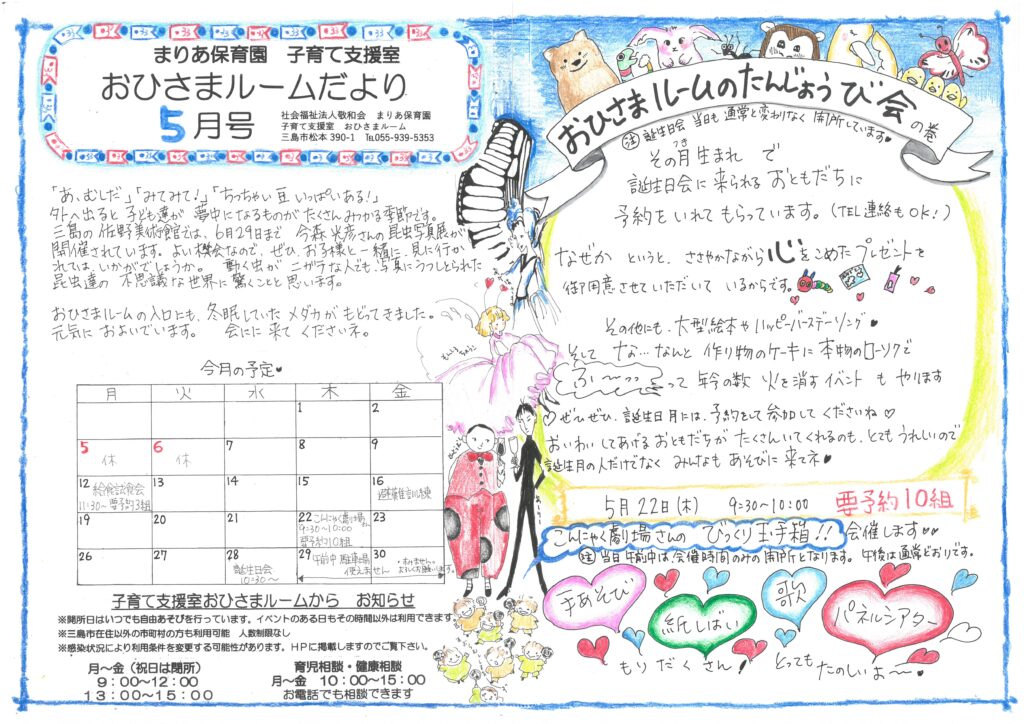 まりあ保育園 子育て支援室
おひさまルームだより
5月号
社会福祉法人敬和会 まりあ保育園
子育て支援室 おひさまルーム
三島市松本390-1 ℡055-939-5353
「あ、むしだ」「みてみて!」「ちっちゃい豆いっぱいある!」
外へ出ると子ども達が夢中になるものがたくさんみつかる季節です。
三島の佐野美術館では、6月29日まで 今森光彦さんの昆虫写真展が
開催されています。よい機会なので、ぜひ、お子様と一緒に見に行か
れては、いかがでしょうか。 動く虫がニガテな人でも、写真にうつしとられた
昆虫達の不思議な世界に驚くことと思います。
おひさまルームの入口にも、冬眠していたメダカがもどってきました。
元気におよいでいます。 会いに来てくださいネ。
今月の予定
月 火 水 木 金
1 2
5 休 6 休 7 8 9
12 給食試食会 11:30~ 要予約3組 13 14 15 16 避難訓練
19 20 21 22 こんにゃく劇場さん 9:30~10:00 要予約10組 23
26 27 28 誕生日会 10:30~ 29 午前中 駐車場使えません 30
・すみません。よろしくお願いします。
子育て支援室おひさまルームから お知らせ
※開所日はいつでも自由あそびを行っています。イベントのある日もその時間以外は利用できます。
※三島市在住以外の市町村の方も利用可能 人数制限なし
※感染状況により利用条件を変更する可能性があります。HPに掲載しますのでご覧下さい。
月~金(祝日は閉所)
9:00~12:00
13:00~15:00
育児相談・健康相談
月~金 10:00~15:00
お電話でも相談できます
おひさまルームのたんじょうび会の巻
注 誕生日会当日も通常と変わりなく開所しています♥
その月生まれで
つき
誕生日会に来られるおともだちに
予約をいれてもらっています。(TEL連絡もOK!)
なぜか というと、ささやかながら心をこめたプレゼントを
御用意させていただいているからです。
その他にも、大型絵本やハッピーバースデーソング♥
そして な…なんと 作り物のケーキに本物のローソクで
ふ~っって 年の数 火を消すイベントもやります
♡ぜひぜひ、誕生日月には、予約をして参加してくださいね♡
おいわいしてあげるおともだちがたくさんいてくれるのも、とてもうれしいので
誕生月の人だけでなく みんなもあそびに来てネ♥
5月22日(木) 9:30~10:00 要予約10組
こんにゃく劇場さんのびっくり玉手箱!! 会催します♥♥
注 当日午前中は会催時間のみの開所となります。午後は通常どおりです。
手あそび
紙しばい
歌
パネルシアター
もりだくさん!
とってもたのしいよ~♥